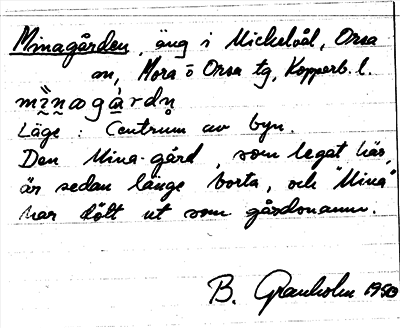 Minagården, äng i Mickelvål, Orsa
sn, Mora o Orsa tg, Kopparb. l.
Läge: Centrum av byn.
Den Mina-gård, som legat här,
är sedan länge borta, och "Mina"
har dött ut som gårdsnamn.
B. Granholm 1950